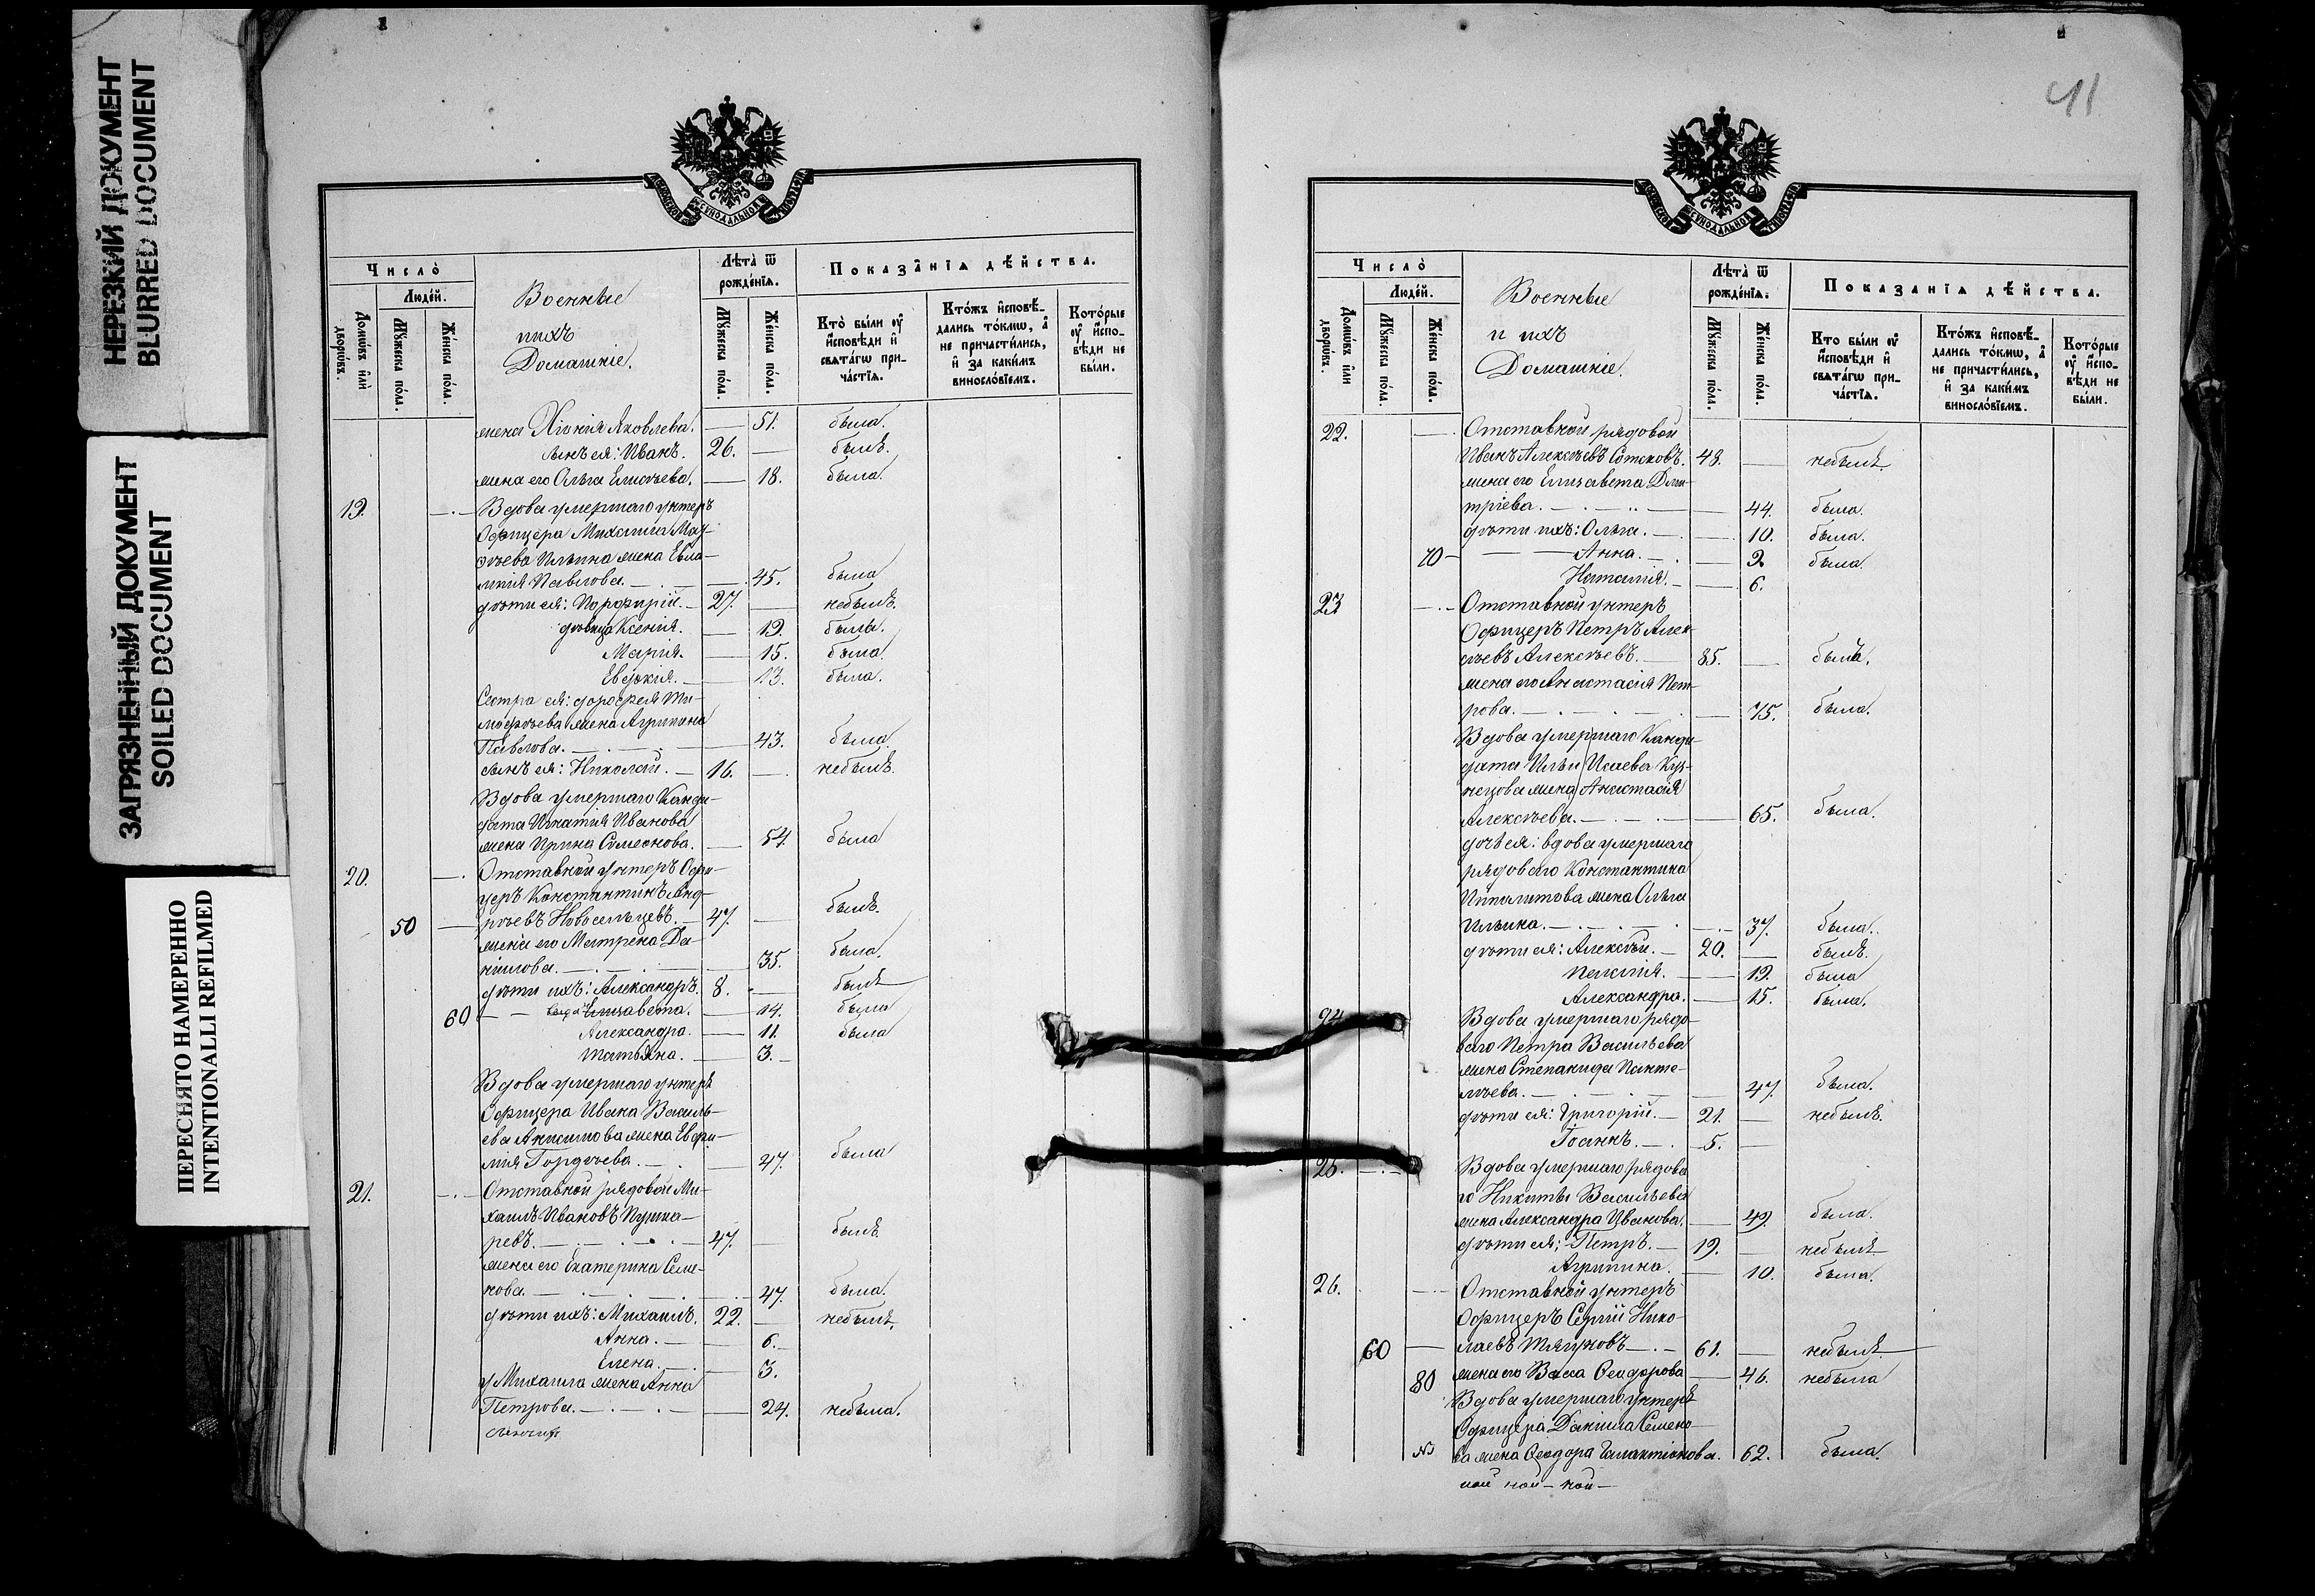 НЕРЕЗКИЙ ДОКУМЕНТ
BLURRED DOCUMENT
ЗАГРЯЗНЕННЫЙ ДОКУМЕНТ
SOILED DOCUMENT
ПЕРЕСНЯТО НАМЕРЕННО
INTENTIONALLI REFILMED
Число̀
Люде́й.
Домѡ́въ и҆лѝ дворѡ́въ.
Мꙋ́жеска по́ла.
Же́нска по́ла.
Военные
ихъ
Домашніе.
Лѣта̀ ѿ рожде́нїѧ.
Мꙋ́жеска по́ла.
Же́нска по́ла.
Показа̑нїѧ дѣ́йства.
Кто̀ бы́ли ᲂу҆ и҆́сповѣди и҆ свѧта́гѡ прича́стїѧ.
Кто́жъ и҆сповѣ́дались то́кмѡ, а҆ не причасти́лись, и҆ за каки́мъ виносло́вїемъ.
Кото́рые ᲂу҆ и҆́сповѣди не бы́ли.
жена Хіонія Яковлева. — 51. была.
сынъ ея: Иванъ. 26. — былъ.
жена его Ольга Елисѣева. — 18. была.
19. Вдова умершаго унтеръ
Офицера Михаила Мат-
ѳѣева Ильина жена Евла-
мпія Павлова. — 45. была
дѣти ея: Порфирій. — 27. — небылъ.
дѣвица Ксенія. — 19. была.
Марія. — 15. была.
Евдокія. — 13. была.
Сестра ея: Ти-
мофѣева жена Агрипина
Павлова. — 43. была
сынъ ея: Николай. — 16. — небылъ.
Вдова умершаго Канди-
дата Игнатія Иванова
жена Ирина Симеонова. — 54. была
20. Отставной унтеръ Офи-
церъ Константинъ Анд-
50 рѣевъ Новосельцевъ. — 47. — былъ.
жена его Матрена Да-
ніилова. — 35. была.
дѣти ихъ: Александръ. 8. — былъ
60 — Елисавета. — 14. была
Александра. — 11. была
Татьяна. — 3. —
Вдова умершаго унтеръ
Офицера Ивана Василь-
ева Анисимова жена Евфи-
мія Гордѣева. — 47. была
21. Отставной рядовой Ми-
хаилъ Ивановъ Пушка-
ревъ. — 47. — былъ.
жена его Екатерина Семе-
нова. — 47. была.
дѣти ихъ: Михаилъ. 22. — небылъ.
Анна. — 6. —
Елена. — 3.
у Михаила жена Анна
Петрова. — 24. небыла.
41
Число̀
Люде́й.
Домѡ́въ и҆лѝ дворѡ́въ.
Мꙋ́жеска по́ла.
Же́нска по́ла.
Военные
и ихъ
Домашніе.
Лѣта̀ ѿ рожде́нїѧ.
Мꙋ́жеска по́ла.
Же́нска по́ла.
Показа̑нїѧ дѣ́йства.
Кто̀ бы́ли ᲂу҆ и҆́сповѣди и҆ свѧта́гѡ прича́стїѧ.
Кто́жъ и҆сповѣ́дались то́кмѡ, а҆ не причасти́лись, и҆ за каки́мъ виносло́вїемъ.
Кото́рые ᲂу҆ и҆́сповѣди не бы́ли.
22. Отставной рядовой
Иванъ Алексѣевъ Сотсковъ. 48. — небылъ.
жена его Елисавета Дми-
тріева. — 44. была.
дѣти ихъ: Ольга. — 10. была.
70 — Анна. — 2 была.
Наталія. — 6.
23 Отставной унтеръ
Офицеръ Петръ Алек-
сѣевъ Алексѣевъ. — 85. — былъ.
жена его Анастасія Пет-
рова. — 75. была.
Вдова умершаго Канди-
дата Ильи Исаева Куз-
нецова жена Анастасія
Алексѣева. — 65. была.
дочь ея: вдова умершаго
рядоваго Константина
Ипполитова жена Ольга
Ильина. — 37. была.
дѣти ея: Алексѣй. — 20. — былъ.
Пелагія. — 19. была
Александра. — 15. была.
24 Вдова умершаго рядо-
ваго Петра Васильева
жена Степанида Панте-
лѣева. — 47. была.
дѣти ея: Григорій. — 21. — небылъ.
Іоаннъ. — 5. —
25. Вдова умершаго рядова
го Никиты Васильева
жена Александра Иванова. — 49. была.
дѣти ея: Петръ. — 19. — небылъ
Агрипина. — 10. была.
26. Отставной унтеръ
Офицеръ Сергій Нико-
60 — лаевъ Тягуновъ — 61. — небылъ.
80 жена его Васса Ѳеодорова — 46. небыла
Вдова умершаго унтеръ
Офицера Даніила Семено-
ва жена Ѳеодора Галактіонова. 62. была.